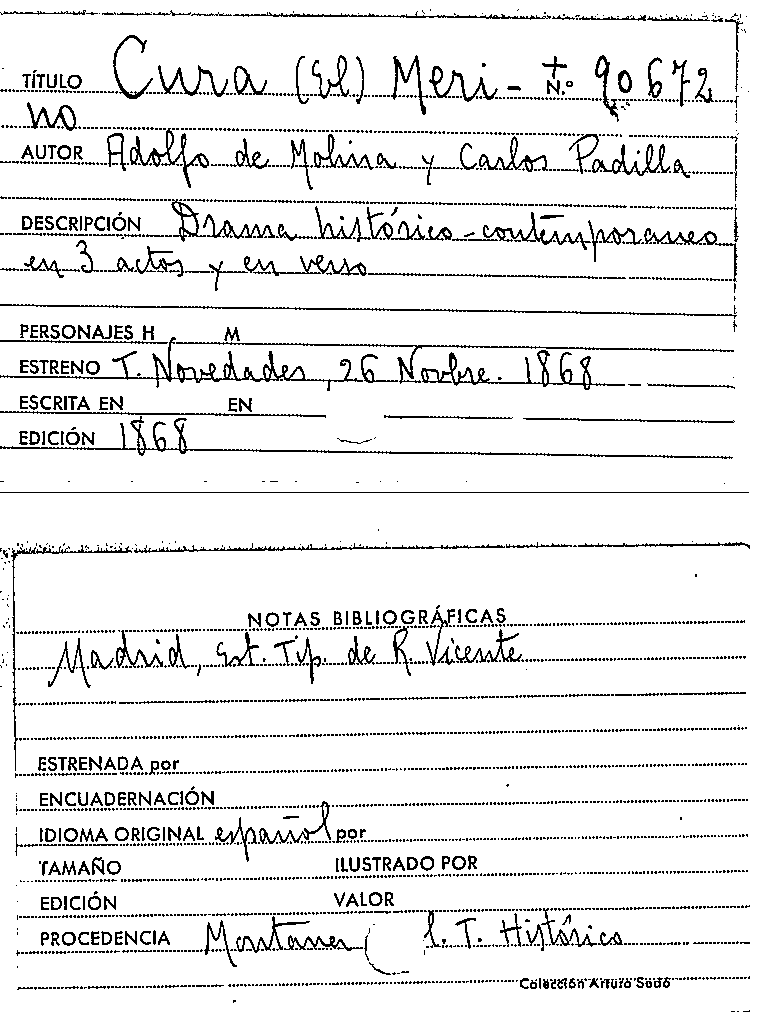 TÍTULO Cura (El) Meri- N.º 90672
no
AUTOR Adolfo de Molina y Carlos Padilla
DESCRIPCIÓN Drama histórico-contemporaneo
en 3 actos y en verso
PERSONAJES H M
ESTRENO T. Novedades, 26 Novbre. 1868
ESCRITA EN EN
EDICIÓN 1868
NOTAS BIBLIOGRÁFICAS
Madrid, Est. Tip. de R. Vicente
ESTRENADA por
ENCUADERNACIÓN
IDIOMA ORIGINAL español por
TAMAÑO ILUSTRADO POR
EDICIÓN VALOR
PROCEDENCIA Montaner l. T. Histórico
Colección Arturo Sedó